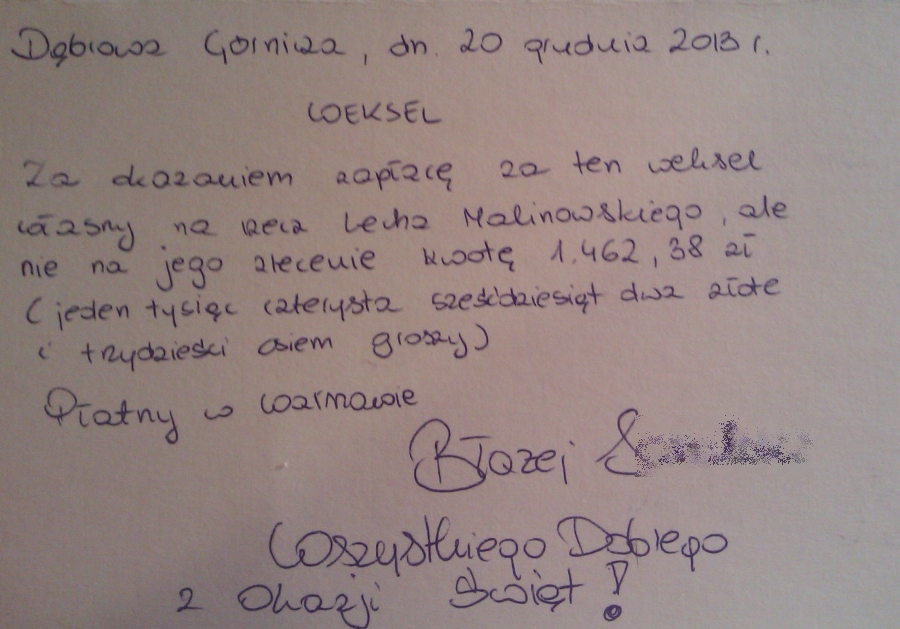 Dąbrowa Górnicza, dn. 20 grudnia 2013 r.
WEKSEL
Za okazaniem zapłacę za ten weksel
własny na rzecz Lecha Malinowskiego, ale
nie na jego zlecenie kwotę 1.462,38 zł
(jeden tysiąc czterysta sześćdziesiąt dwa złote
i trzydzieści osiem groszy)
Płatny w Warszawie
Błażej
Wszystkiego Dobrego
z Okazji Świąt!